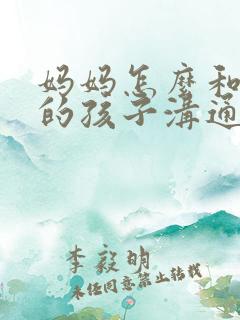 妈妈怎麼和
的孩子溝通
李毅明
未经同意禁止转载